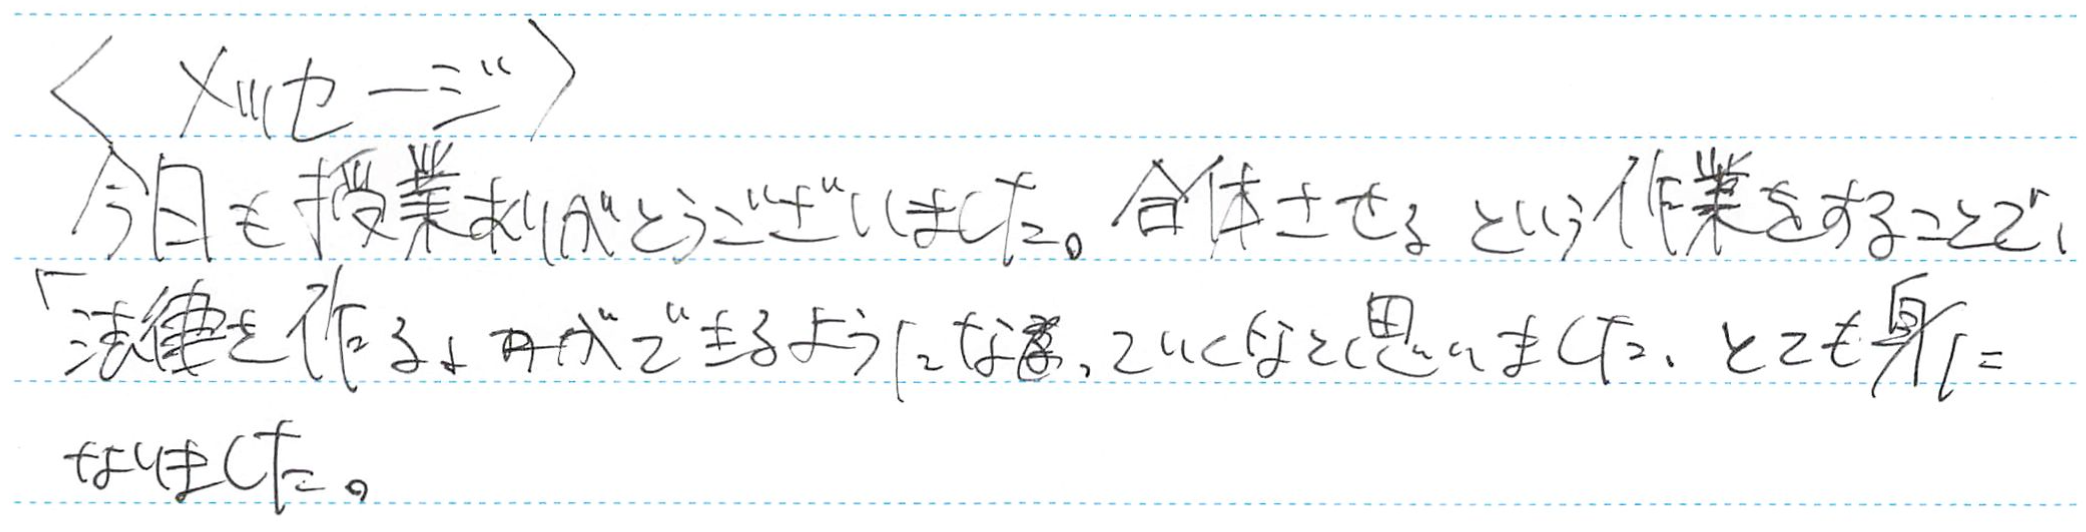 〈メッセージ〉
今日も授業ありがとうございました。合体させるという作業をすることで、
「法律を作る」ができるようになっていくなと思いました、とても身に
なりました。